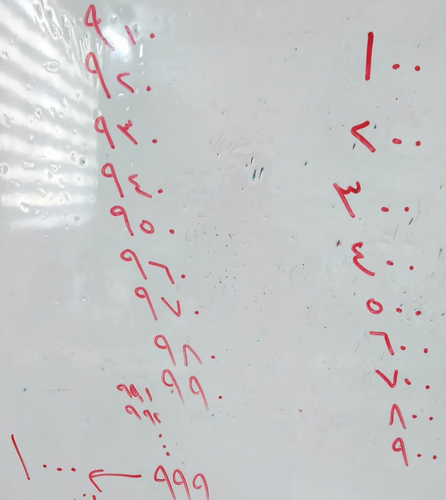 ١٠٠
٢٠٠
٣٠٠
٤٠٠
٥٠٠
٦٠٠
٧٠٠
٨٠٠
٩٠٠
٩١٠
٩٢٠
٩٣٠
٩٤٠
٩٥٠
٩٦٠
٩٧٠
٩٨٠
٩٩٠
٩٩١
٩٩٢
⋮
٩٩٩ ← ١٠٠٠